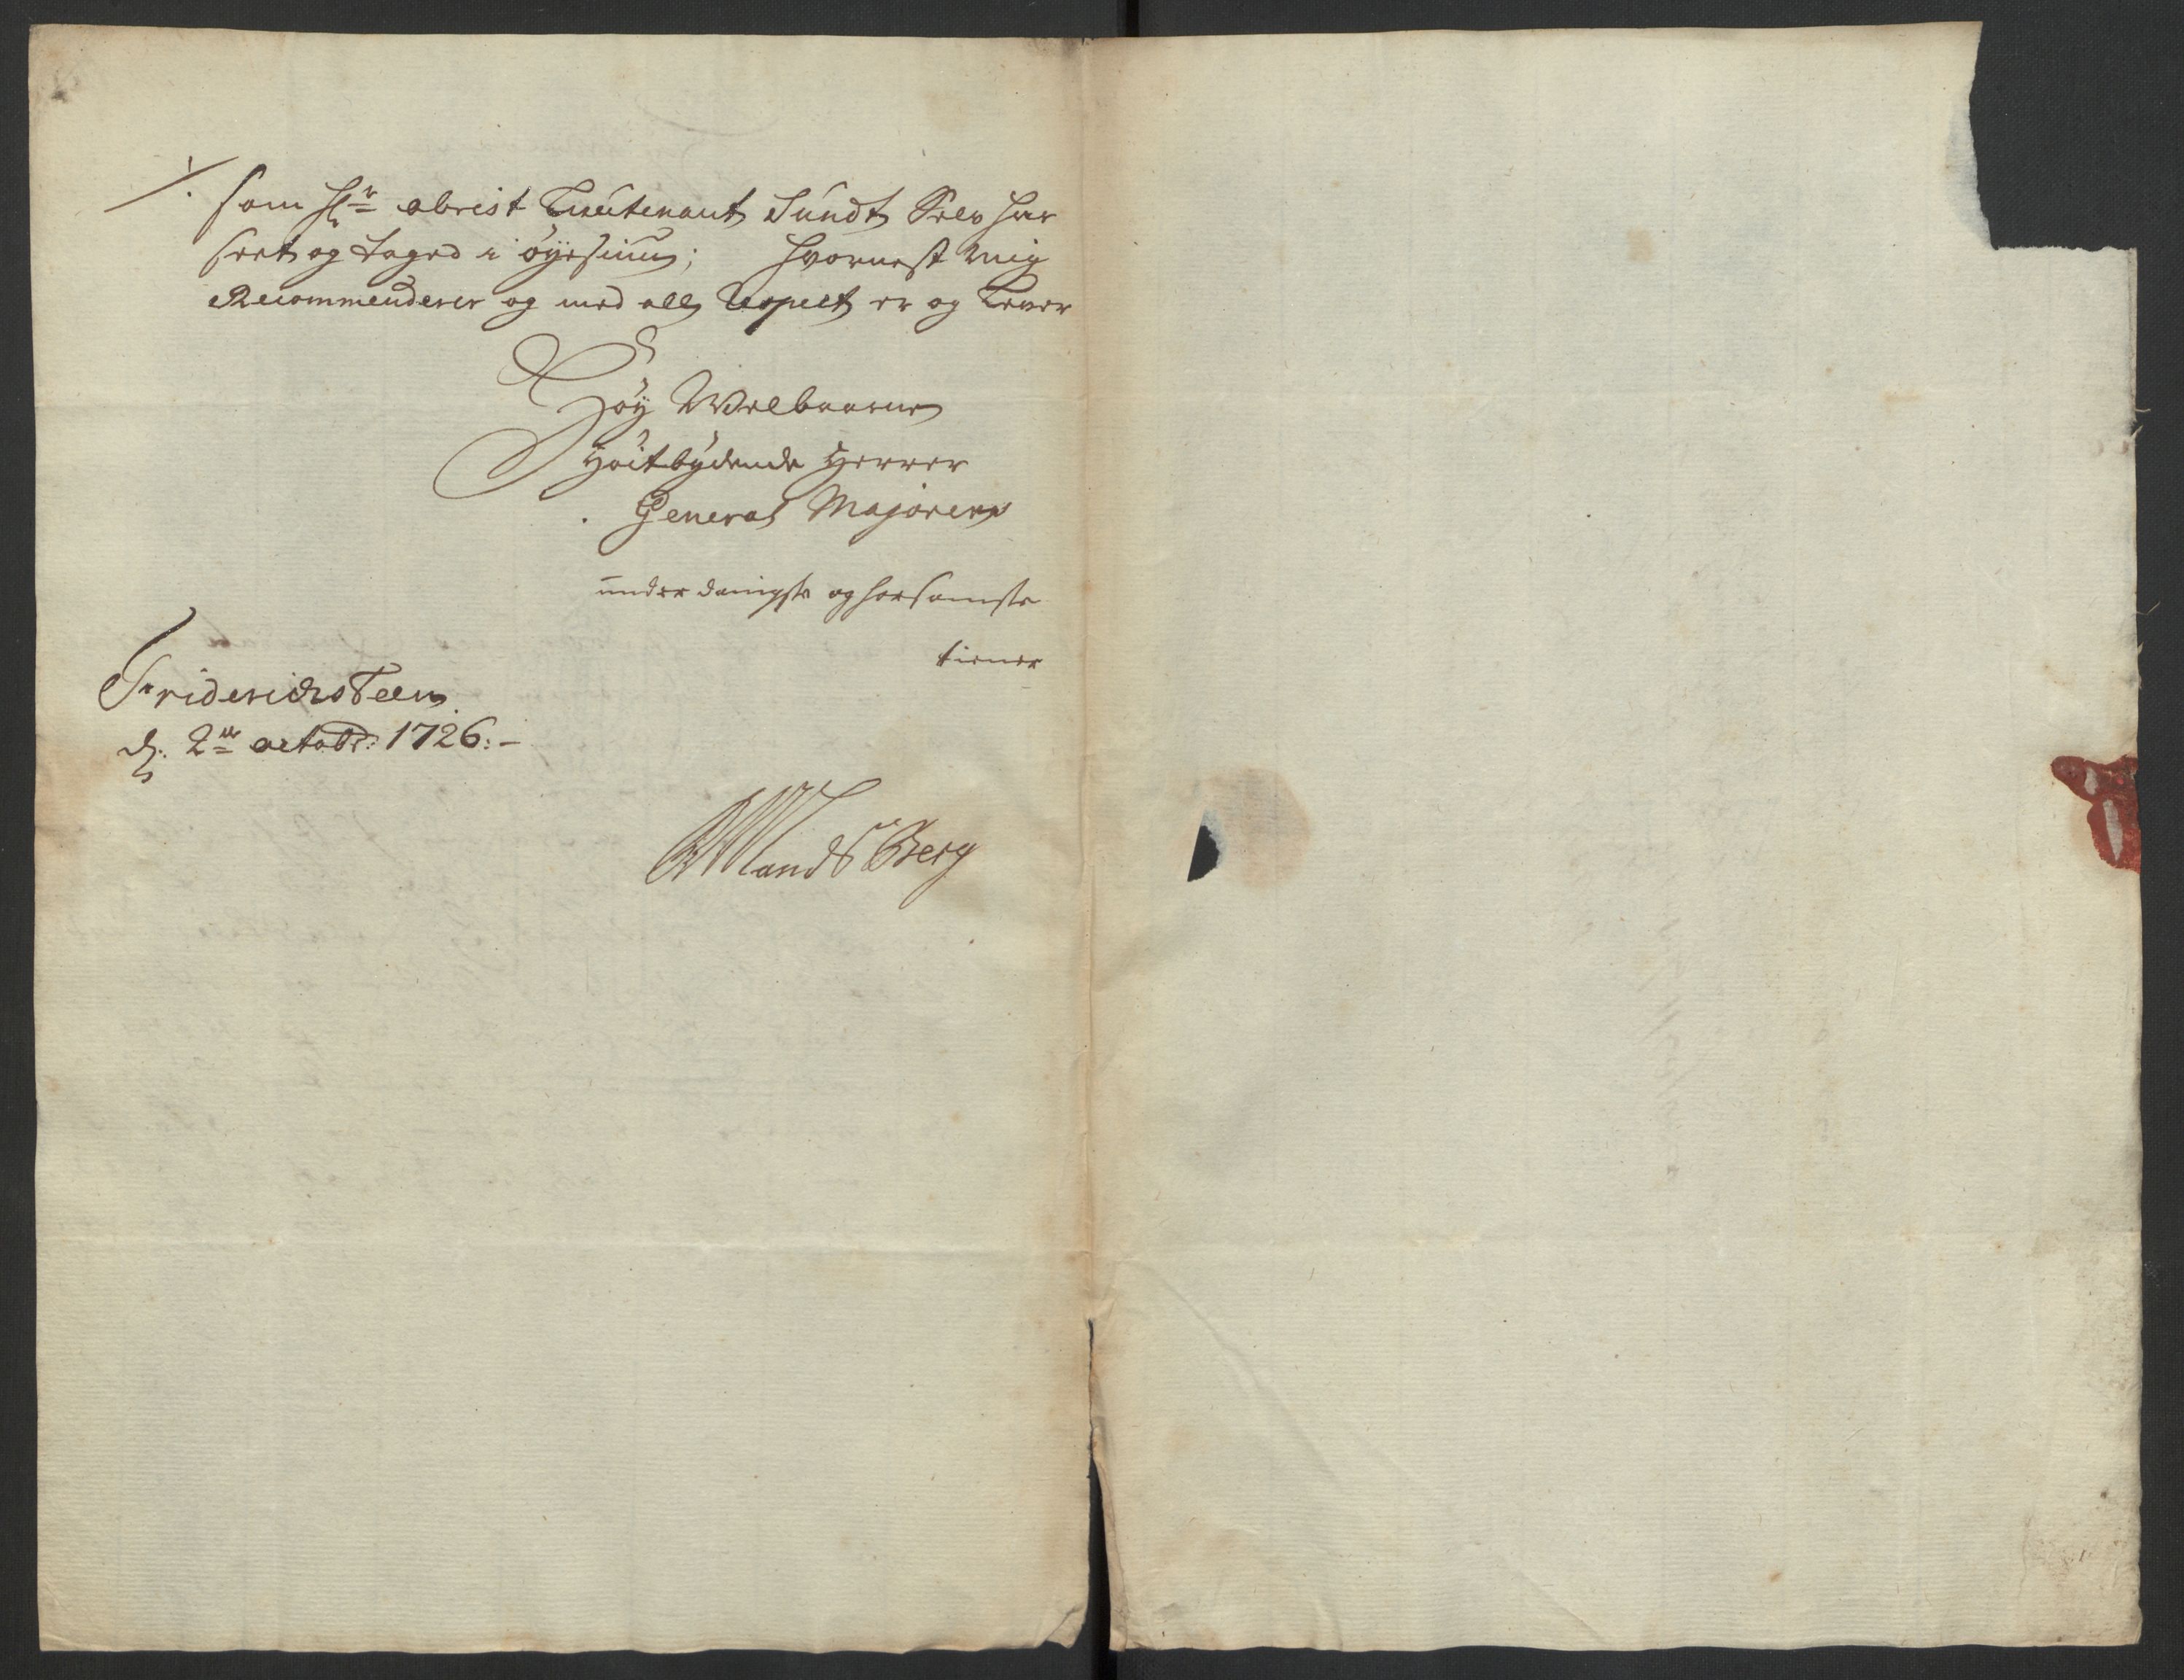 /. som Hr obrist Lieutenant Sundt Selv har
seet og taged i øyesiun; hvornest mig
Recommenderer og med all Respect er og Lever
Høy Welbaarne
Høitbydende Herrer
General Majorens
underdanigste og horsamste
tiener
Friderichsteen
d: 2en octobr: 1726:-
MandsBerg